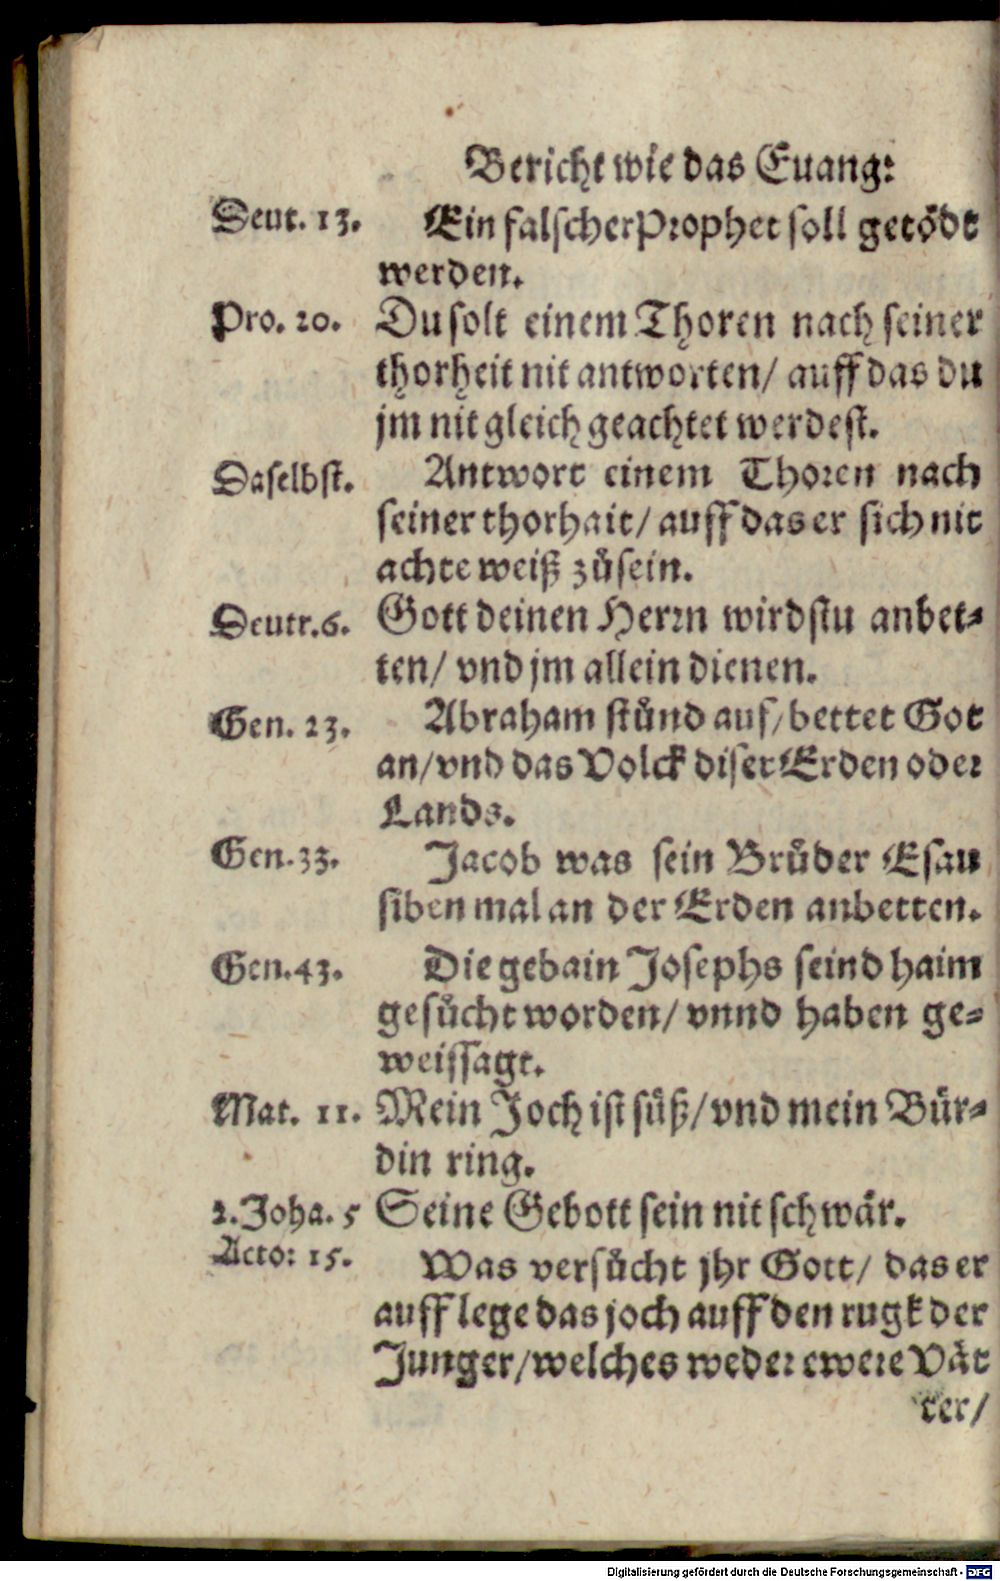 Bericht wie das Euang:
Deut. 13. Ein falscher Prophet soll getödt
werden.
Pro. 20. Du solt einem Thoren nach seiner
thorheit nit antworten/ auff das du
jm nit gleich geachtet werdest.
Daselbst. Antwort einem Thoren nach
seiner thorhait/ auff das er sich nit
achte weiß zůsein.
Deutr. 6. Gott deinen Herrn wirdstu anbet-
ten/ vnd jm allein dienen.
Gen. 23. Abraham stůnd auf/ bettet Got
an/ vnd das Volck diser Erden oder
Lands.
Gen. 33. Jacob was sein Brůder Esau
siben mal an der Erden anbetten.
Gen. 43. Die gebain Josephs seind haim
gesůcht worden/ vnnd haben ge-
weissagt.
Mat. 11. Mein Joch ist süß/ vnd mein Bür-
din ring.
2. Joha. 5 Seine Gebott sein nit schwär.
Acto: 15. Was versůcht jhr Gott/ das er
auff lege das joch auff den rugk der
Junger/ welches weder ewere Vät
ter/
Digitalisierung gefördert durch die Deutsche Forschungsgemeinschaft - DFG